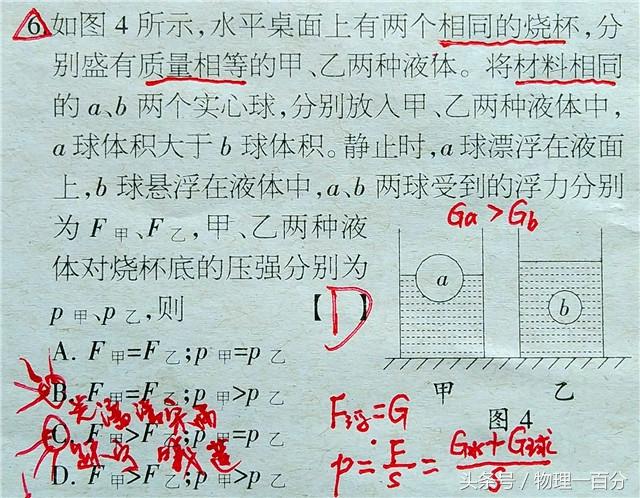 6.如图4所示,水平桌面上有两个相同的烧杯,分
别盛有质量相等的甲、乙两种液体。将材料相同
的a、b两个实心球,分别放入甲、乙两种液体中,
a球体积大于b球体积。静止时,a球漂浮在液面
上,b球悬浮在液体中,a、b两球受到的浮力分别
为F甲、F乙,甲、乙两种液
体对烧杯底的压强分别为
p甲、p乙,则
【D】
Ga>Gb
a
b
甲
乙
图4
A. F甲=F乙;p甲=p乙
B. F甲=F乙;p甲>p乙
C. F甲>F乙;p甲=p乙
D. F甲>F乙;p甲>p乙
F浮=G
p=F/S=G水+G球/S
头条号/物理一百分